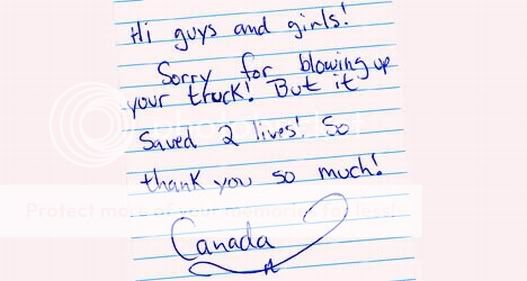 Hi guys and girls!
Sorry for blowing up
your truck! But it
Saved 2 lives! So
thank you so much!
Protect more of your memories for less!
Canada